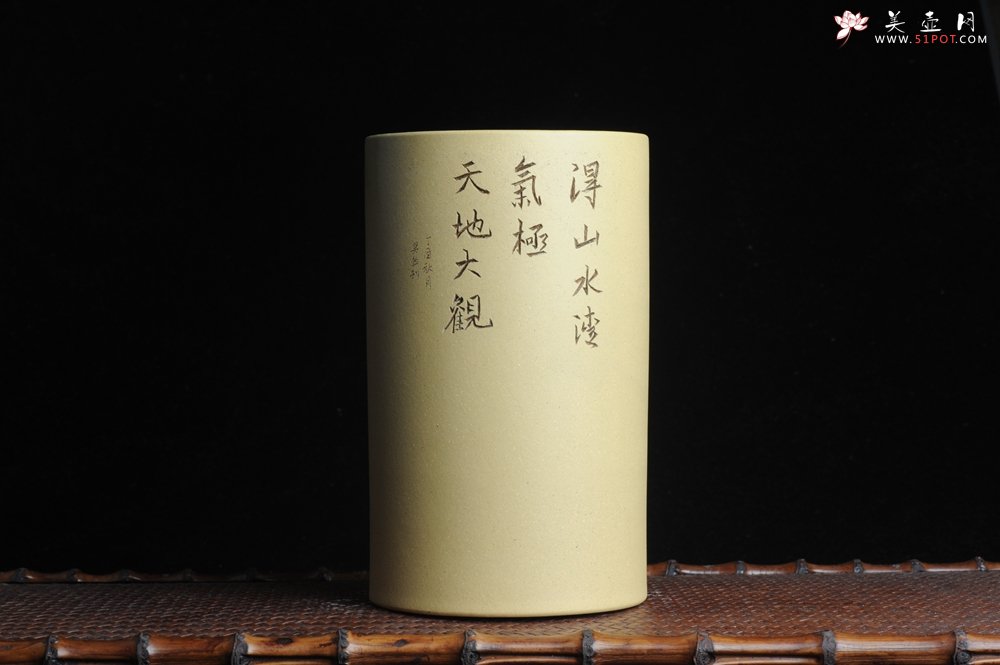 得山水清
氣極
天地大觀
丁酉秋月
美壶网
WWW.51POT.COM